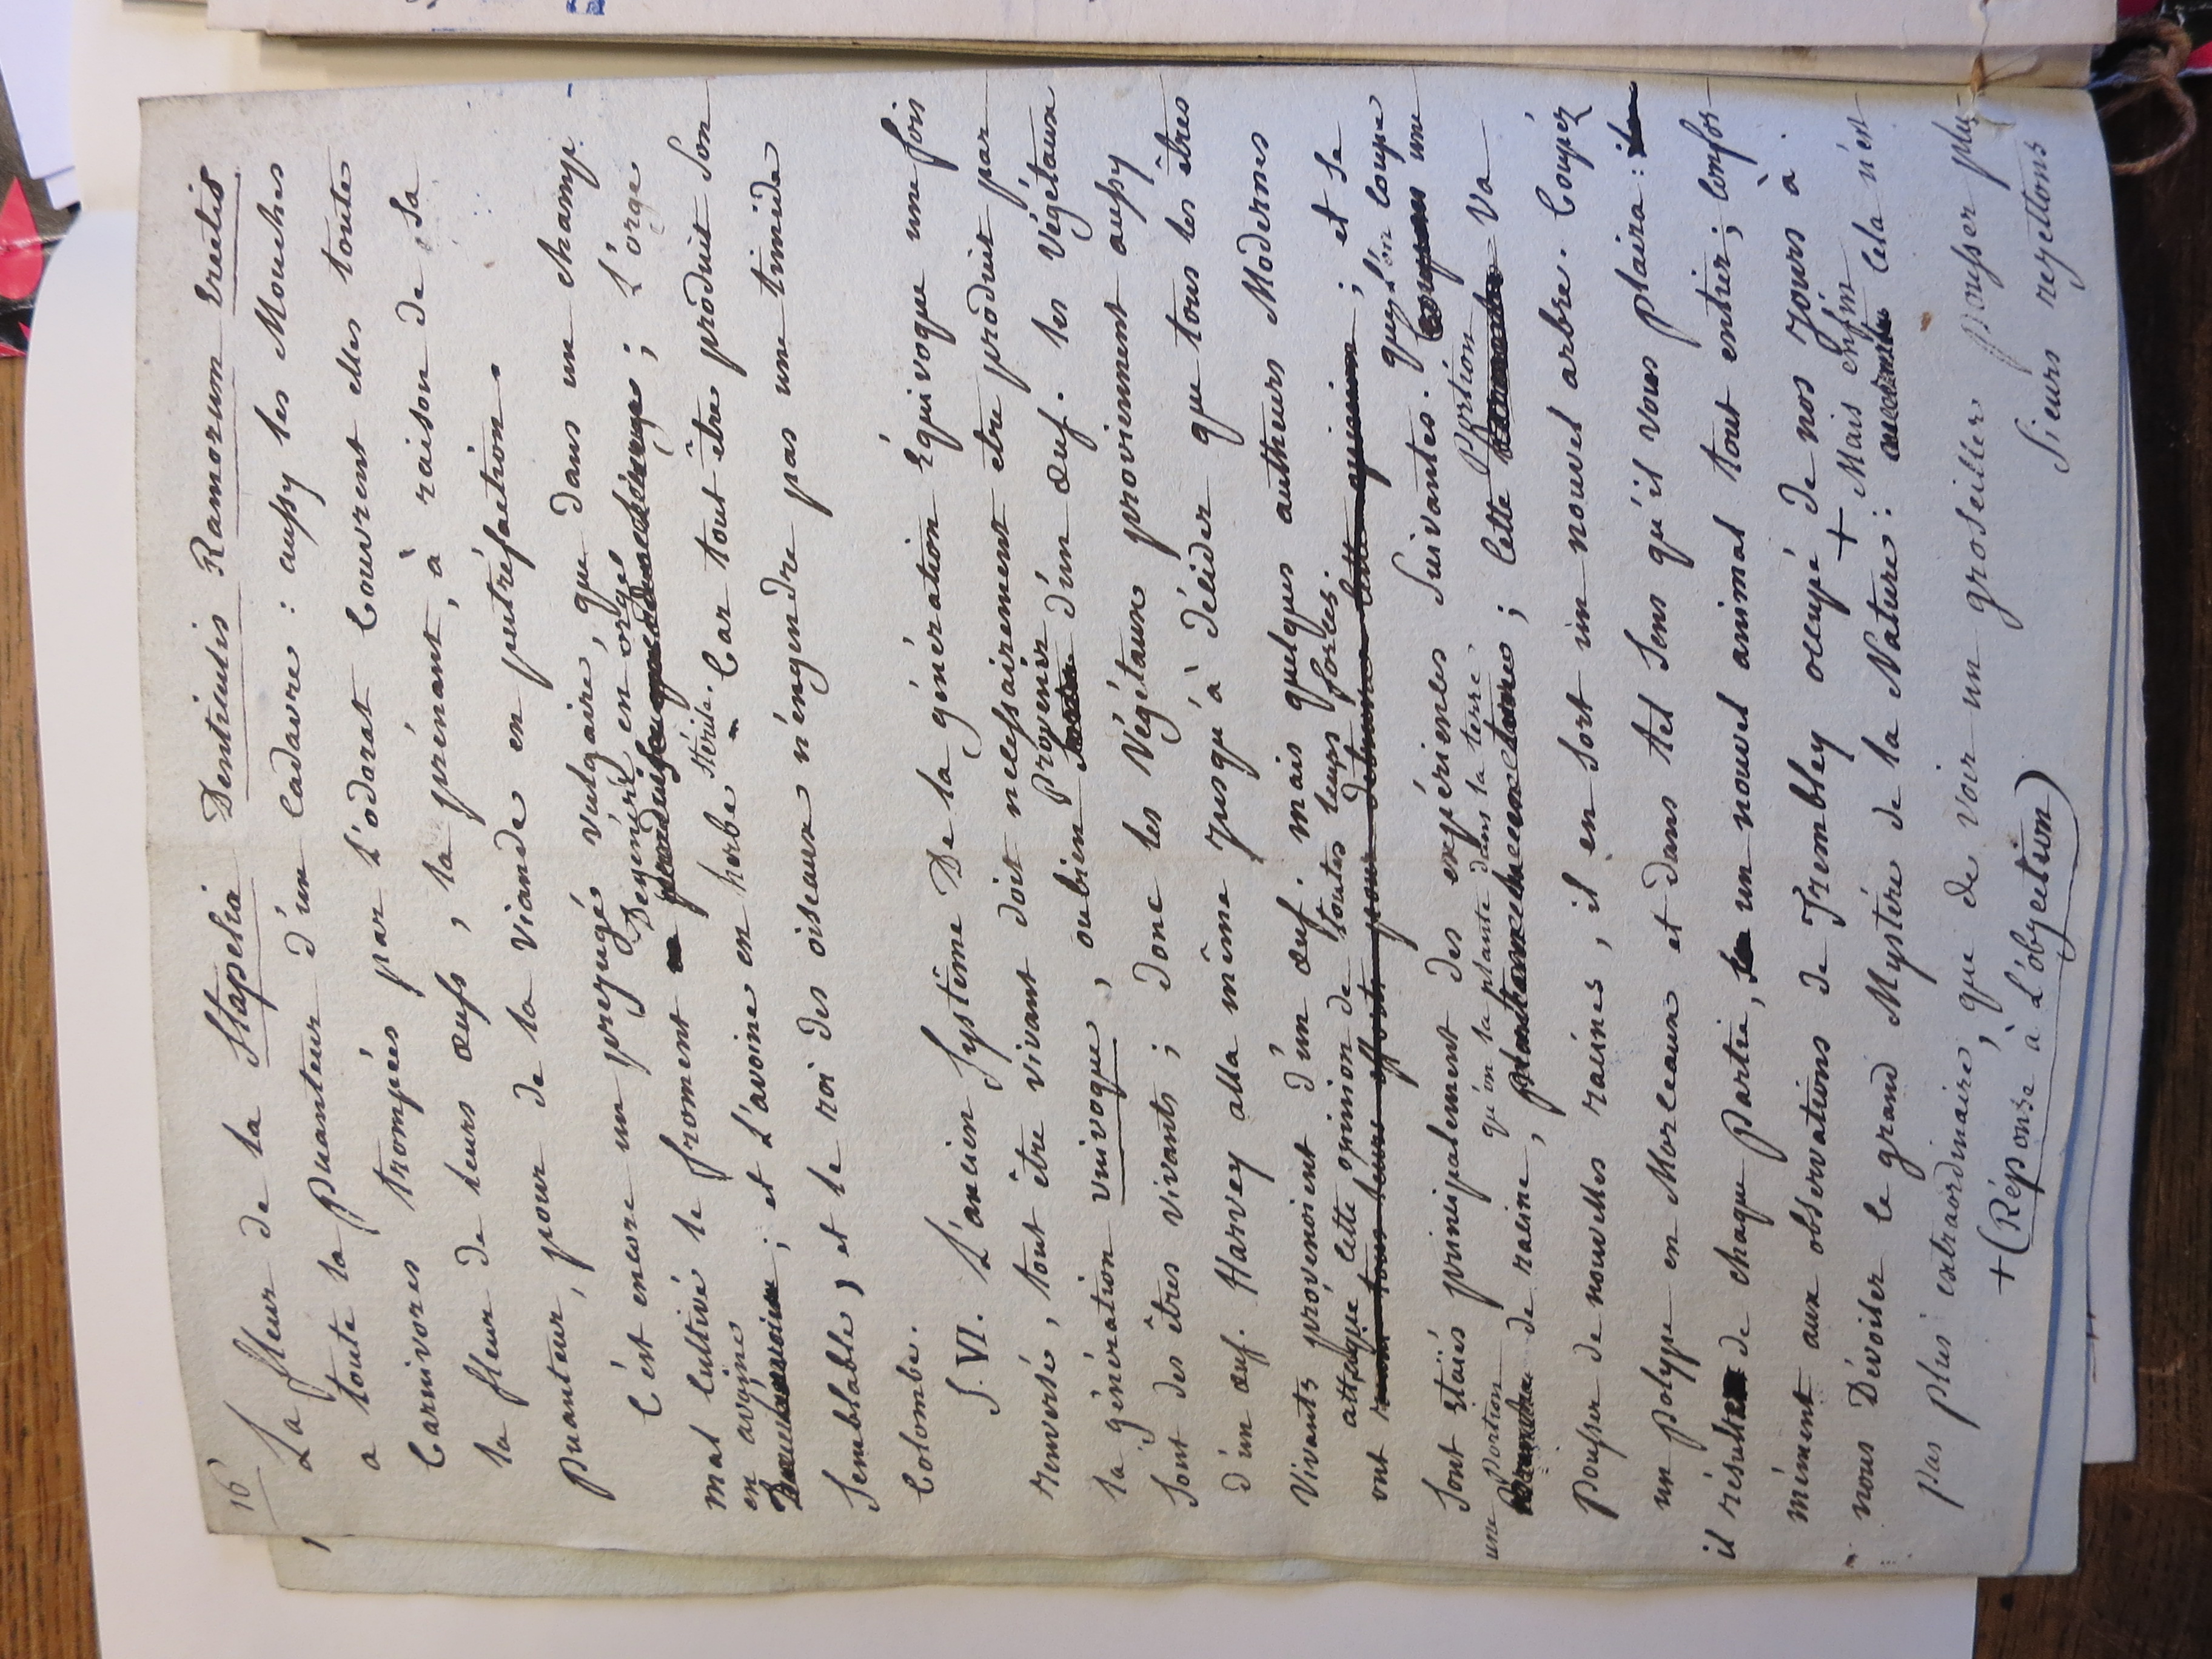 16
La fleur de la Stapelia Denticulis Ramorum Erectis
a toute la puanteur d'un Cadavre : aussy les Mouches
Carnivores trompées par l'odorat Couvrent elles toute
la fleur de leurs œufs, la prénant, à raison de sa
puanteur, pour de la viande en putréfaction.
C'est encore un preyugé vulgaire, que dans un champ
mal Cultivé le froment Dégénére en orge ; l'orge
en avoine ; et l'avoine en herbe stérile. Car tout être produit Son
Semblable, et le roi des oiseaux n'éngendre pas une timide
Colombe.
S. VI. L'ancien Systême De la génération Equivoque une fois
renversé, tout être vivant doit necessairement etre produit par
la génération univoque, oubien Provenir d'un œuf. les Végétaux
Sont des êtres vivants ; donc les Végétaux proviennent aussy
d'un œuf. Harvey alla même Jusqu'à Décider que tous les êtres
Vivants provenoient d'un œuf. mais quelques autheurs Modernes
ont attaqué cette opinion de toutes leurs forces ; et se
Sont etaiés principalement des expériences Suivantes. Que l'on coupe une
une portion de racine, qu'on la plante dans la terre ; Cette Portion va
pousser de nouvelles racines, il en sort un nouvel arbre. Coupéz
un polype en Morceaux et dans tel Sens qu'il vous plaira :
il résulte de chaque partie, un nouvel animal tout entier ; Confor
mément aux observations de Trembley occupé de nos Jours à
nous Dévoiler le grand Mystére de la Nature : + Mais enfin Cela n'est
pas plus extraordinaire, que de voir un groseiller pousser plu-
sieurs reyettons
+ (Réponse à L'obyection)